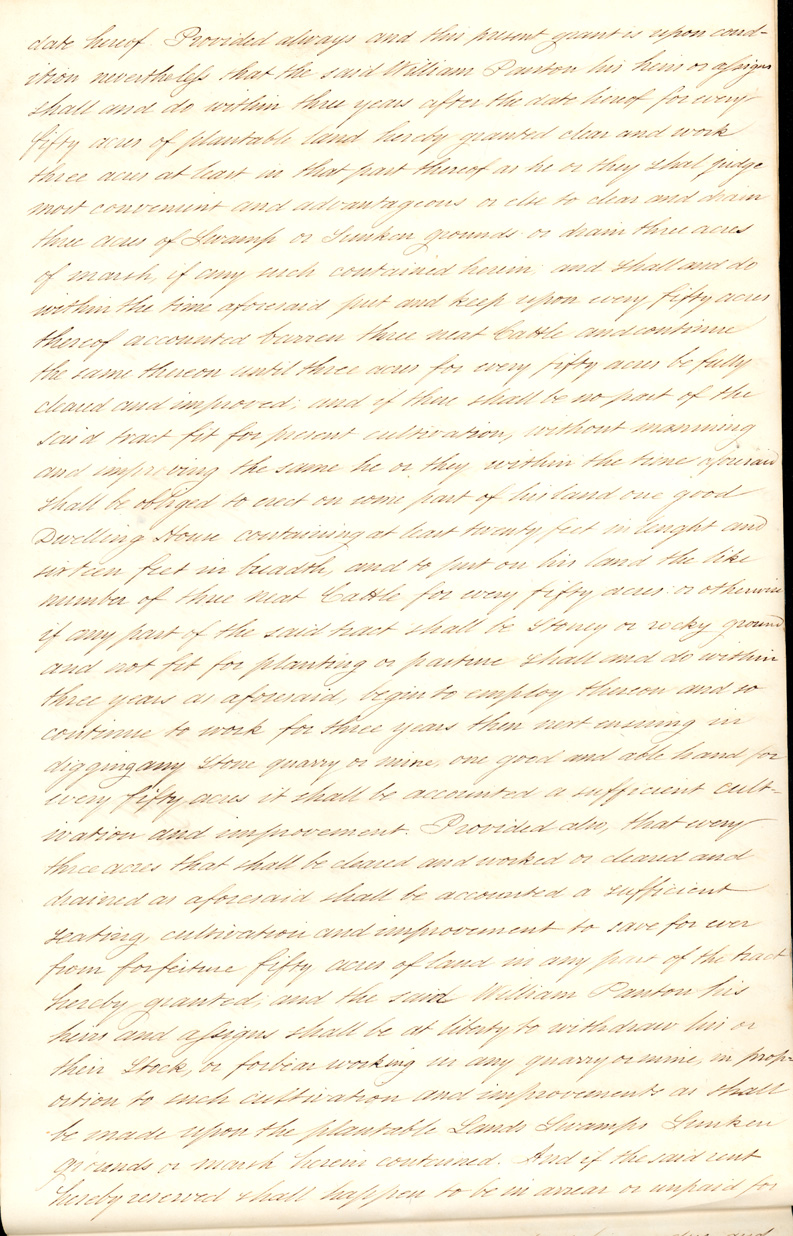 date hereof. Provided always and this present grant is upon cond-
ition nevertheless that the said William Panton his heirs or assigns
shall and do within three years after the date hereof for every
fifty acres of plantable land hereby granted clear and work
three acres at least in that part thereof as he or they shall judge
most convenient and advantageous or else to clear and drain
three acres of Swamp or Sunken grounds or drain three acres
of marsh, if any such contained herein; and shall and do
within the time aforesaid put and keep upon every fifty acres
thereof accounted barren three neat Cattle and continue
the same thereon until three acres for every fifty acres be fully
cleared and improved; and if there shall be no part of the
said tract fit for present cultivation, without manning
and improving the same he or they within the time aforesaid
shall be obliged to erect on some part of his land one good
Dwelling House containing at least twenty feet in lenght and
sixteen feet in breadth, and to put on his land the like
number of three neat Cattle for every fifty acres or otherwise
if any part of the said tract shall be Stoney or rocky ground
and not fit for planting or pasture shall and do within
three years as aforesaid, begin to employ thereon and so
continue to work for three years then next ensuing in
digging any Stone quarry or mine, one good and able hand for
every fifty acres it shall be accounted a sufficient cult-
ivation and improvement. Provided also, that every
three acres that shall be cleared and worked or cleared and
drained as aforesaid shall be accounted a sufficient
seating, cultivation and improvement to save for ever
from forfeiture fifty acres of land in any part of the tract
hereby granted; and the said William Panton his
heirs and assigns shall be at liberty to withdraw his or
their Stock, or forbear working in any quarry or mine, in prop-
ortion to such cultivation and improvements as shall
be made upon the plantable Lands Swamps Sunken
grounds or marsh herein contained. And if the said rent
hereby reserved shall happen to be in arrear or unpaid for